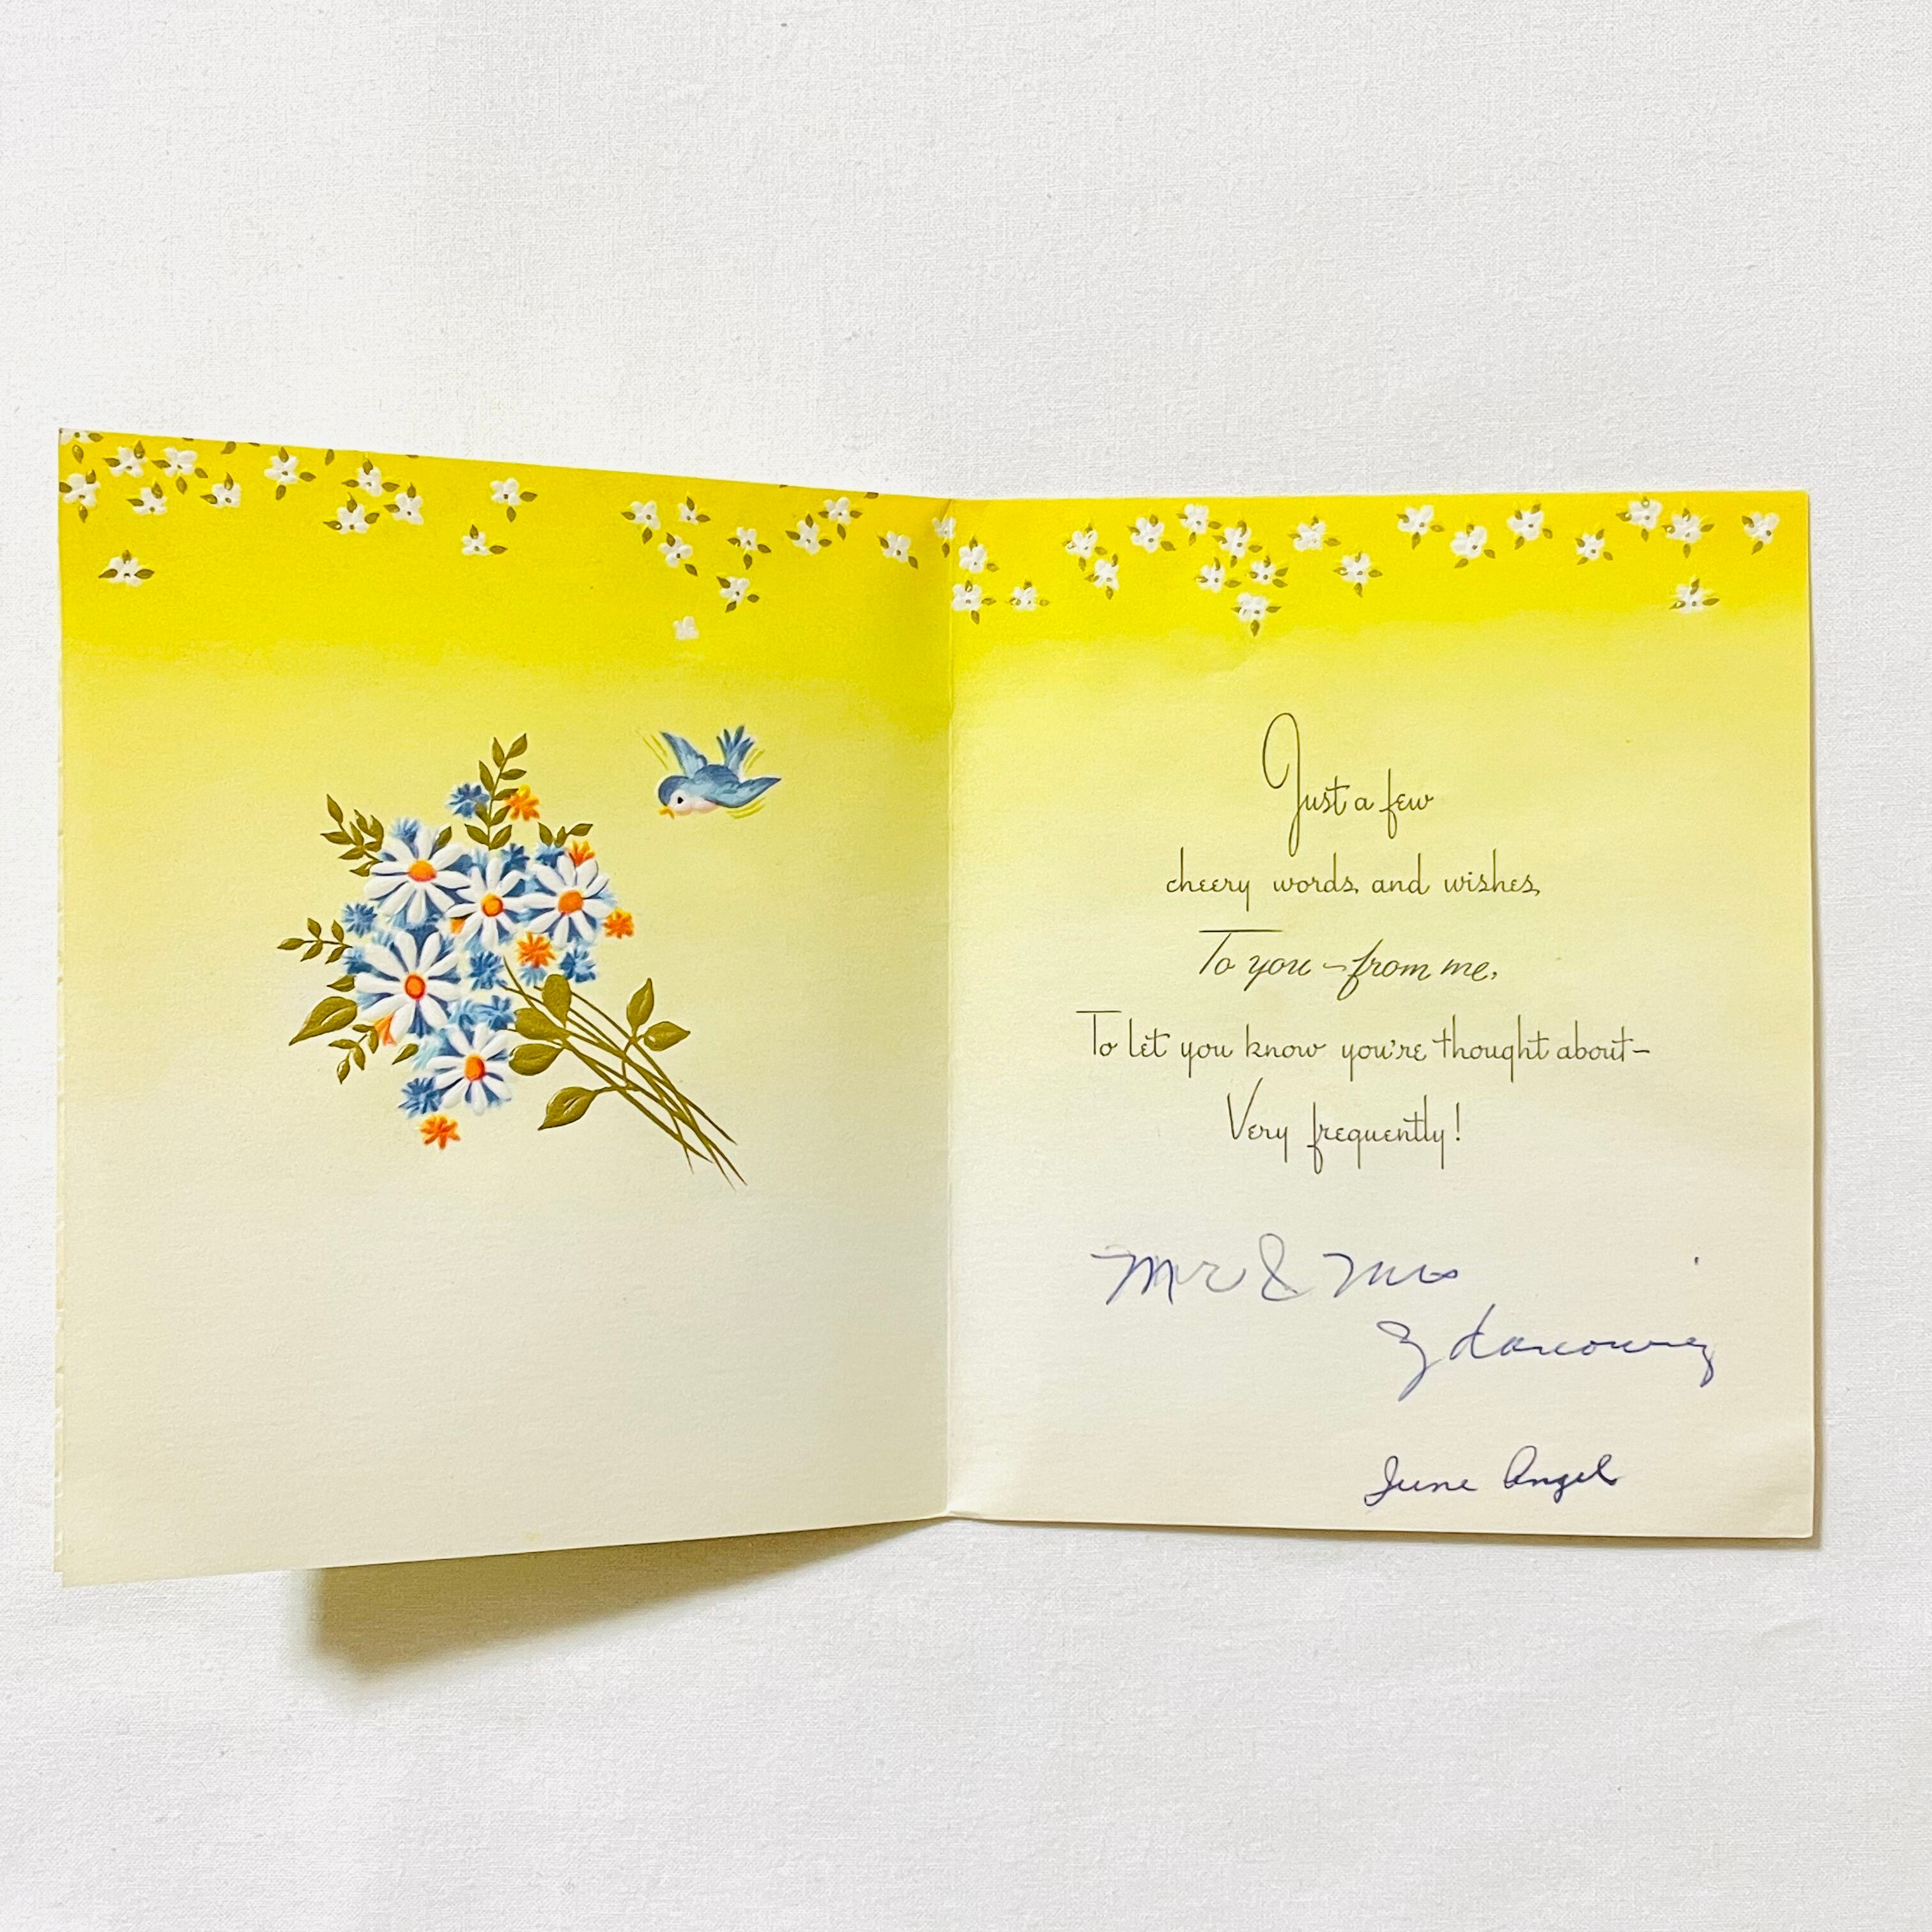 Just a few
cheery words and wishes,
To you – from me,
To let you know you're thought about –
Very frequently!
Mr & Mrs
June Angel